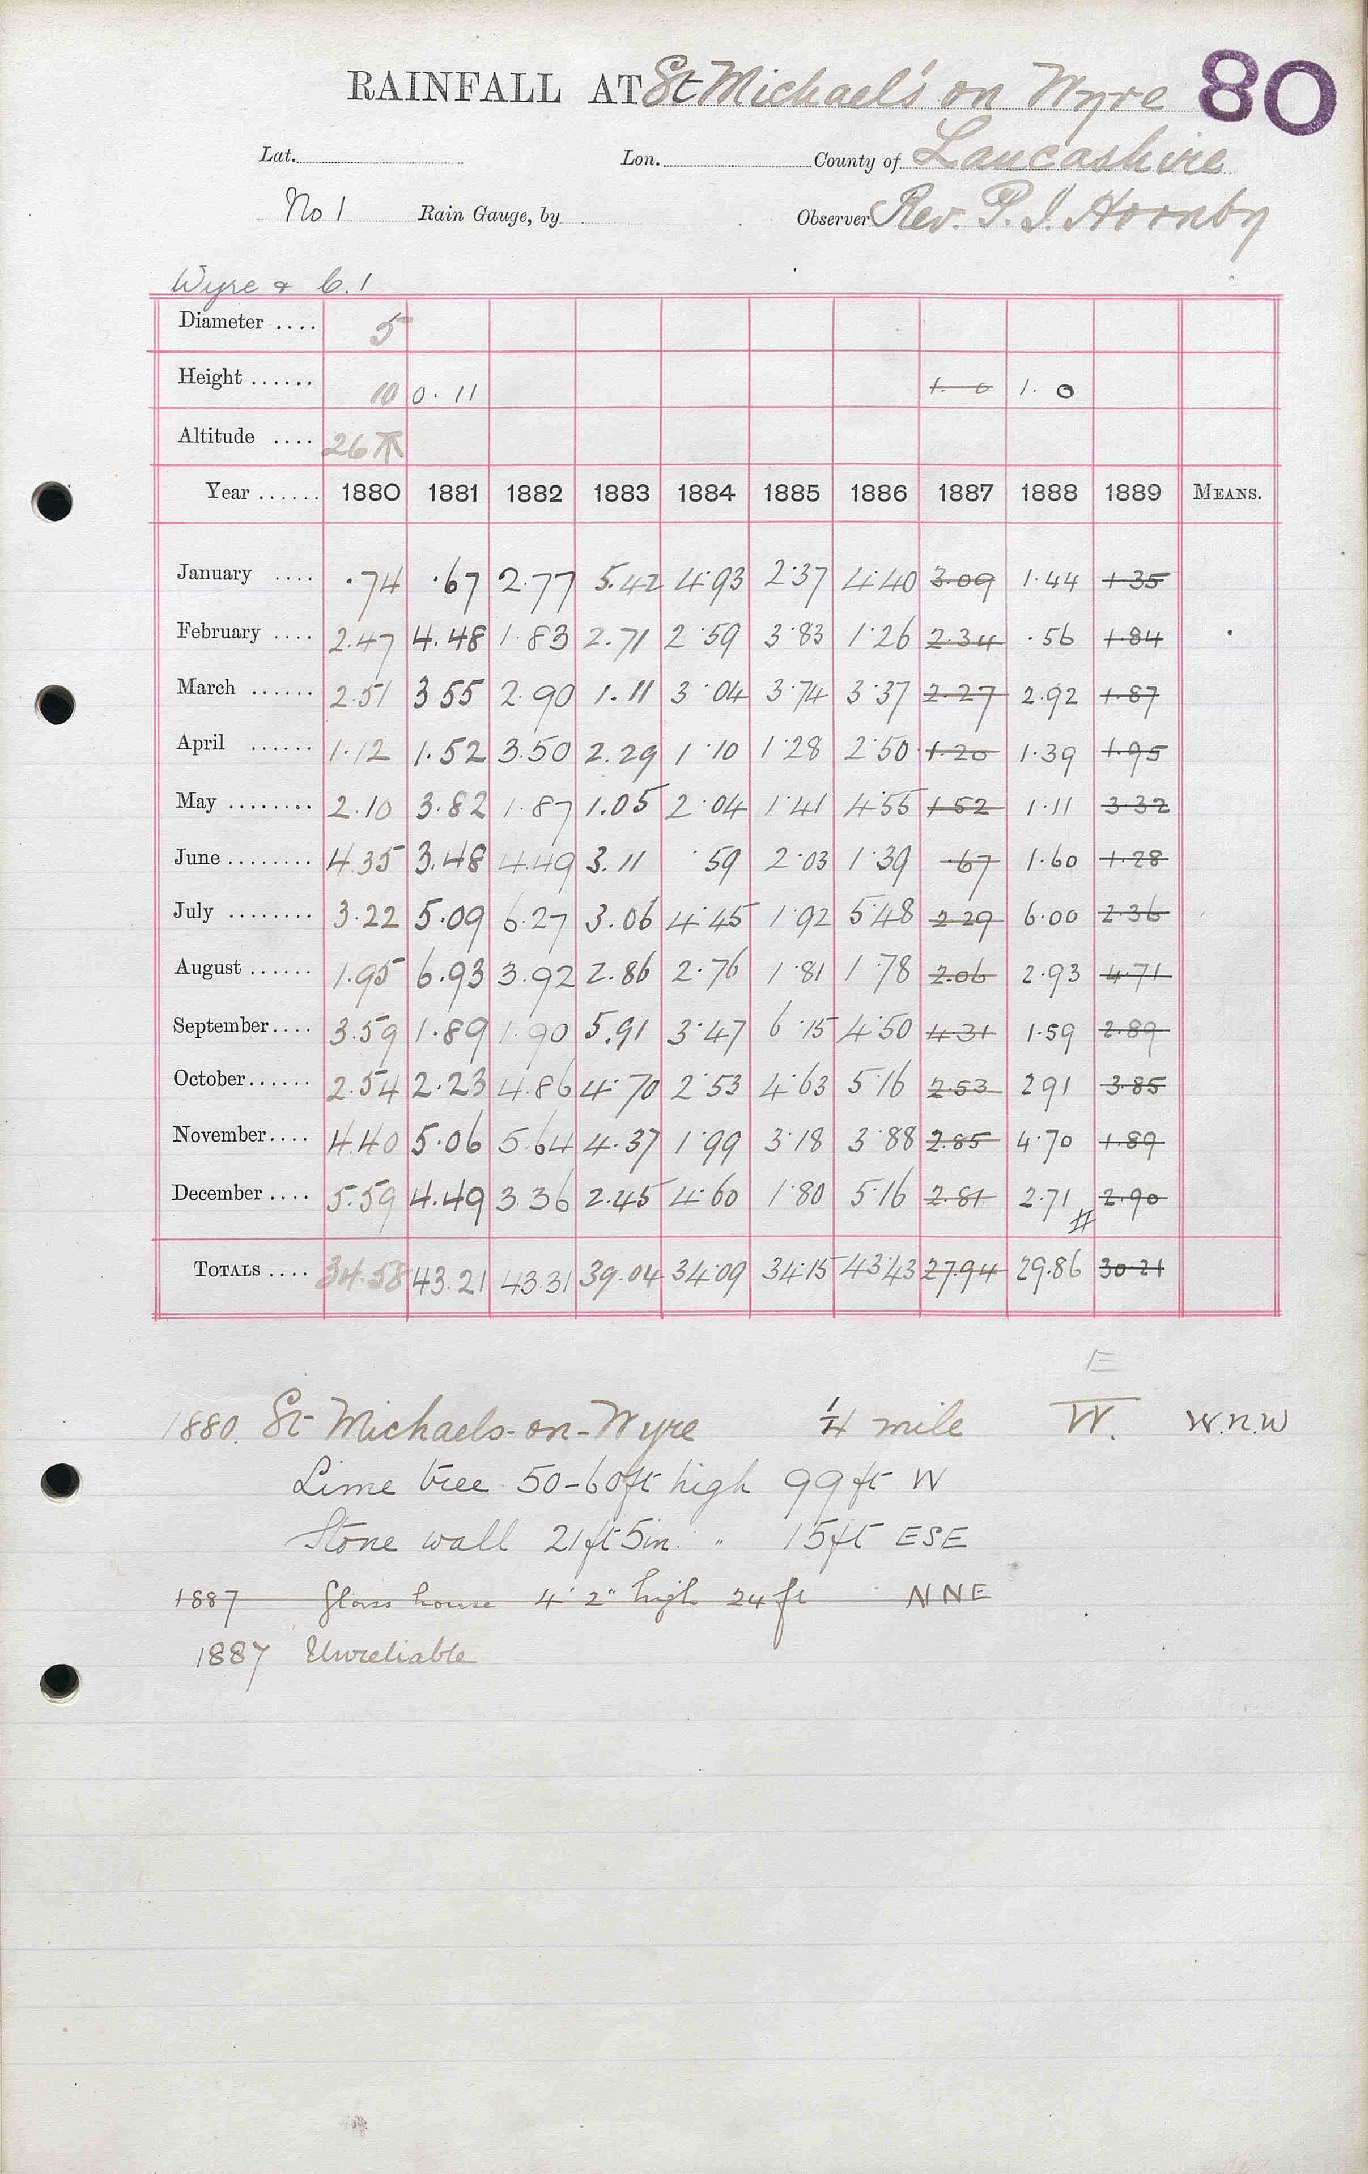 RAINFALL AT St Michael's on Wyre 80
Lat. Lon. County of Lancashire
No 1 Rain Gauge, by Observer Rev. P. J. Hornby
Wyre & C.1
Diameter .... 5
Height ...... 10 0.11 1.0 1.0
Altitude .... 26
Year ...... 1880 1881 1882 1883 1884 1885 1886 1887 1888 1889 MEANS.
January .... .74 .67 2.77 5.42 4.93 2.37 4.40 3.09 1.44 1.35
February .... 2.47 4.48 1.83 2.71 2.59 3.83 1.26 2.34 .56 1.84
March ...... 2.51 3.55 2.90 1.11 3.04 3.74 3.37 2.27 2.92 1.87
April ...... 1.12 1.52 3.50 2.29 1.10 1.28 2.50 1.20 1.39 1.95
May ........ 2.10 3.82 1.87 1.05 2.04 1.41 4.55 1.52 1.11 3.32
June ........ 4.35 3.48 4.49 3.11 .59 2.03 1.39 .67 1.60 1.28
July ........ 3.22 5.09 6.27 3.06 4.45 1.92 5.48 2.29 6.00 2.36
August ...... 1.95 6.93 3.92 2.86 2.76 1.81 1.78 2.06 2.93 4.71
September.... 3.59 1.89 1.90 5.91 3.47 6.15 4.50 4.31 1.59 2.89
October...... 2.54 2.23 4.86 4.70 2.53 4.63 5.16 2.53 2.91 3.85
November.... 4.40 5.06 5.64 4.37 1.99 3.18 3.88 2.85 4.70 1.89
December .... 5.59 4.49 3.36 2.45 4.60 1.80 5.16 2.81 2.71 2.90
TOTALS .... 34.58 43.21 43.31 39.04 34.09 34.15 43.43 27.94 29.86 30.21
E
1880. St Michaels-on-Wyre 1/4 mile W. W.N.W
Lime tree 50-60ft high 99ft W
Stone wall 21ft 5in. " 15ft ESE
1887 Glass house 4' 2" high 24 ft NNE
1887 Unreliable